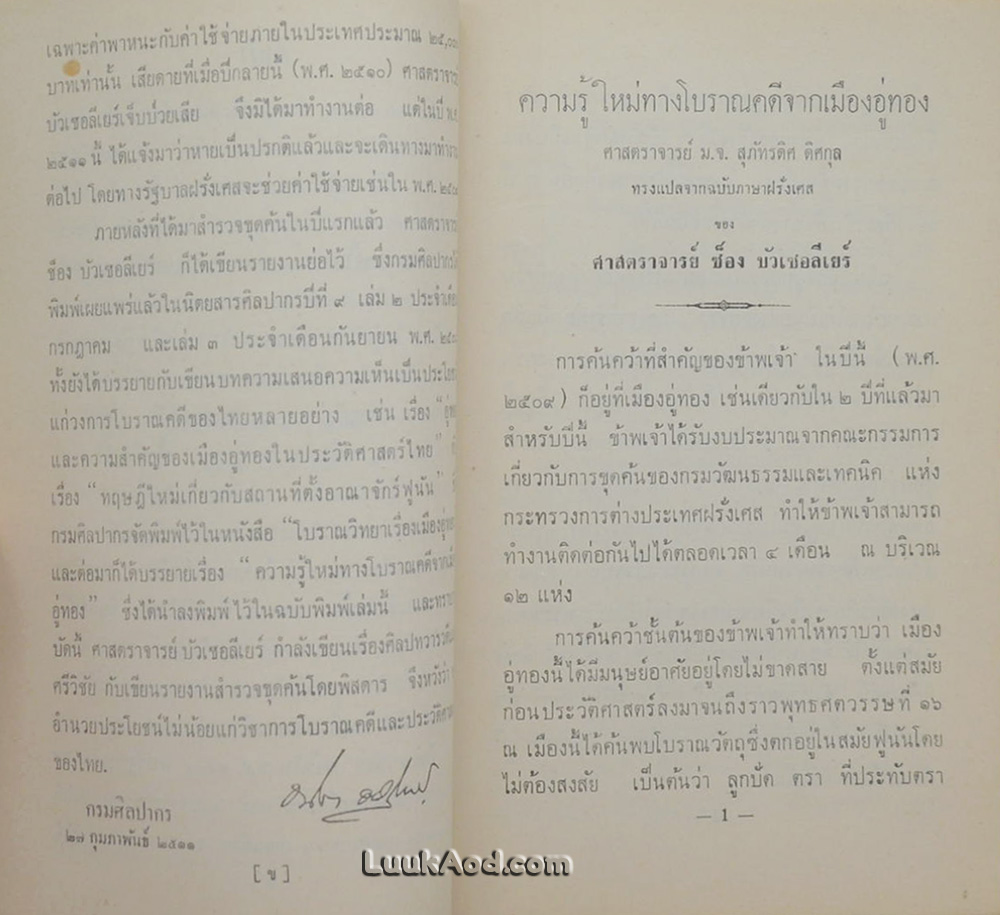 เฉพาะค่าพาหนะกับค่าใช้จ่ายภายในประเทศประมาณ ๒๕,๐๐๐
บาทเท่านั้น เสียดายที่เมื่อปีกลายนี้ (พ.ศ. ๒๕๑๐) ศาสตราจาร
บัวเซอลีเยร์เจ็บป่วยเสีย จึงมิได้มาทำงานต่อ แต่ในปี พ.ศ.
๒๕๑๑ นี้ ได้แจ้งมาว่าหายเป็นปรกติแล้วและจะเดินทางมาทำงาน
ต่อไป โดยทางรัฐบาลฝรั่งเศสจะช่วยค่าใช้จ่ายเช่นใน พ.ศ.
ภายหลังที่ได้มาสำรวจขุดค้นในปีแรกแล้ว ศาสตราจาร
ช็อง บัวเซอลีเยร์ ก็ได้เขียนรายงานย่อไว้ ซึ่งกรมศิลปากร
พิมพ์เผยแพร่แล้วในนิตยสารศิลปากรปีที่ ๙ เล่ม ๒ ประจำเดือน
กรกฎาคม และเล่ม ๓ ประจำเดือนกันยายน พ.ศ.
ทั้งยังได้บรรยายกับเขียนบทความเสนอความเห็นเป็นประโยชน์
แก่วงการโบราณคดีของไทยหลายอย่าง เช่น เรื่อง "อู่ท
และความสำคัญของเมืองอู่ทองในประวัติศาสตร์ไทย"
เรื่อง "ทฤษฎีใหม่เกี่ยวกับสถานที่ตั้งอาณาจักร์ฟูนัน"
กรมศิลปากรจัดพิมพ์ไว้ในหนังสือ "โบราณวิทยาเรื่องเมืองอู่ท
และต่อมาก็ได้บรรยายเรื่อง "ความรู้ใหม่ทางโบราณคดีจากเมือง
อู่ทอง" ซึ่งได้นำลงพิมพ์ไว้ในฉบับพิมพ์เล่มนี้ และทราบ
บัดนี้ ศาสตราจารย์ บัวเซอลีเยร์ กำลังเขียนเรื่องศิลปทวารวดี
ศรีวิชัย กับเขียนรายงานสำรวจขุดค้นโดยพิสดาร จึงหวังว่า
อำนวยประโยชน์ไม่น้อยแก่วิชาการโบราณคดีและประวัติศาส
ของไทย.
กรมศิลปากร
๒๗ กุมภาพันธ์ ๒๕๑๑
[ ข ]
ความรู้ ใหม่ทางโบราณคดีจากเมืองอู่ทอง
ศาสตราจารย์ ม.จ. สุภัทรดิศ ดิศกุล
ทรงแปลจากฉบับภาษาฝรั่งเศส
ของ
ศาสตราจารย์ ช็อง บัวเซอลีเยร์
การค้นคว้าที่สำคัญของข้าพเจ้า ในปีนี้ (พ.ศ.
๒๕๐๙) ก็อยู่ที่เมืองอู่ทอง เช่นเดียวกับใน ๒ ปีที่แล้วมา
สำหรับปีนี้ ข้าพเจ้าได้รับงบประมาณจากคณะกรรมการ
เกี่ยวกับการขุดค้นของกรมวัฒนธรรมและเทคนิค แห่ง
กระทรวงการต่างประเทศฝรั่งเศส ทำให้ข้าพเจ้าสามารถ
ทำงานติดต่อกันไปได้ตลอดเวลา ๔ เดือน ณ บริเวณ
๑๒ แห่ง
การค้นคว้าชั้นต้นของข้าพเจ้าทำให้ทราบว่า เมือง
อู่ทองนี้ได้มีมนุษย์อาศัยอยู่โดยไม่ขาดสาย ตั้งแต่สมัย
ก่อนประวัติศาสตร์ลงมาจนถึงราวพุทธศตวรรษที่ ๑๖
ณ เมืองนี้ได้ค้นพบโบราณวัตถุซึ่งตกอยู่ในสมัยฟูนันโดย
ไม่ต้องสงสัย เป็นต้นว่า ลูกปัด ตรา ที่ประทับตรา
— 1 —
LuukAod.com